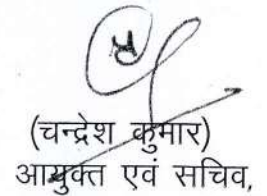 (चन्द्रेश कुमार)
आयुक्त एवं सचिव,